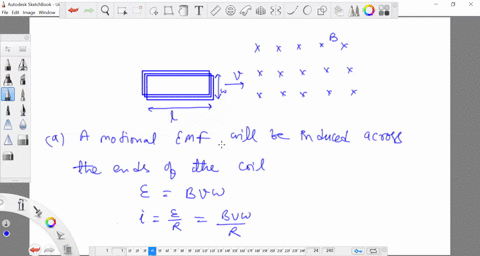 Autodesk SketchBook
File Edit Image Window Help
B
x x x x x
v
w
x x x x x
x x x x x
l
(a) A motional EMF will be induced across
the ends of the coil
ε = Bvw
i = ε/R = Bvw/R